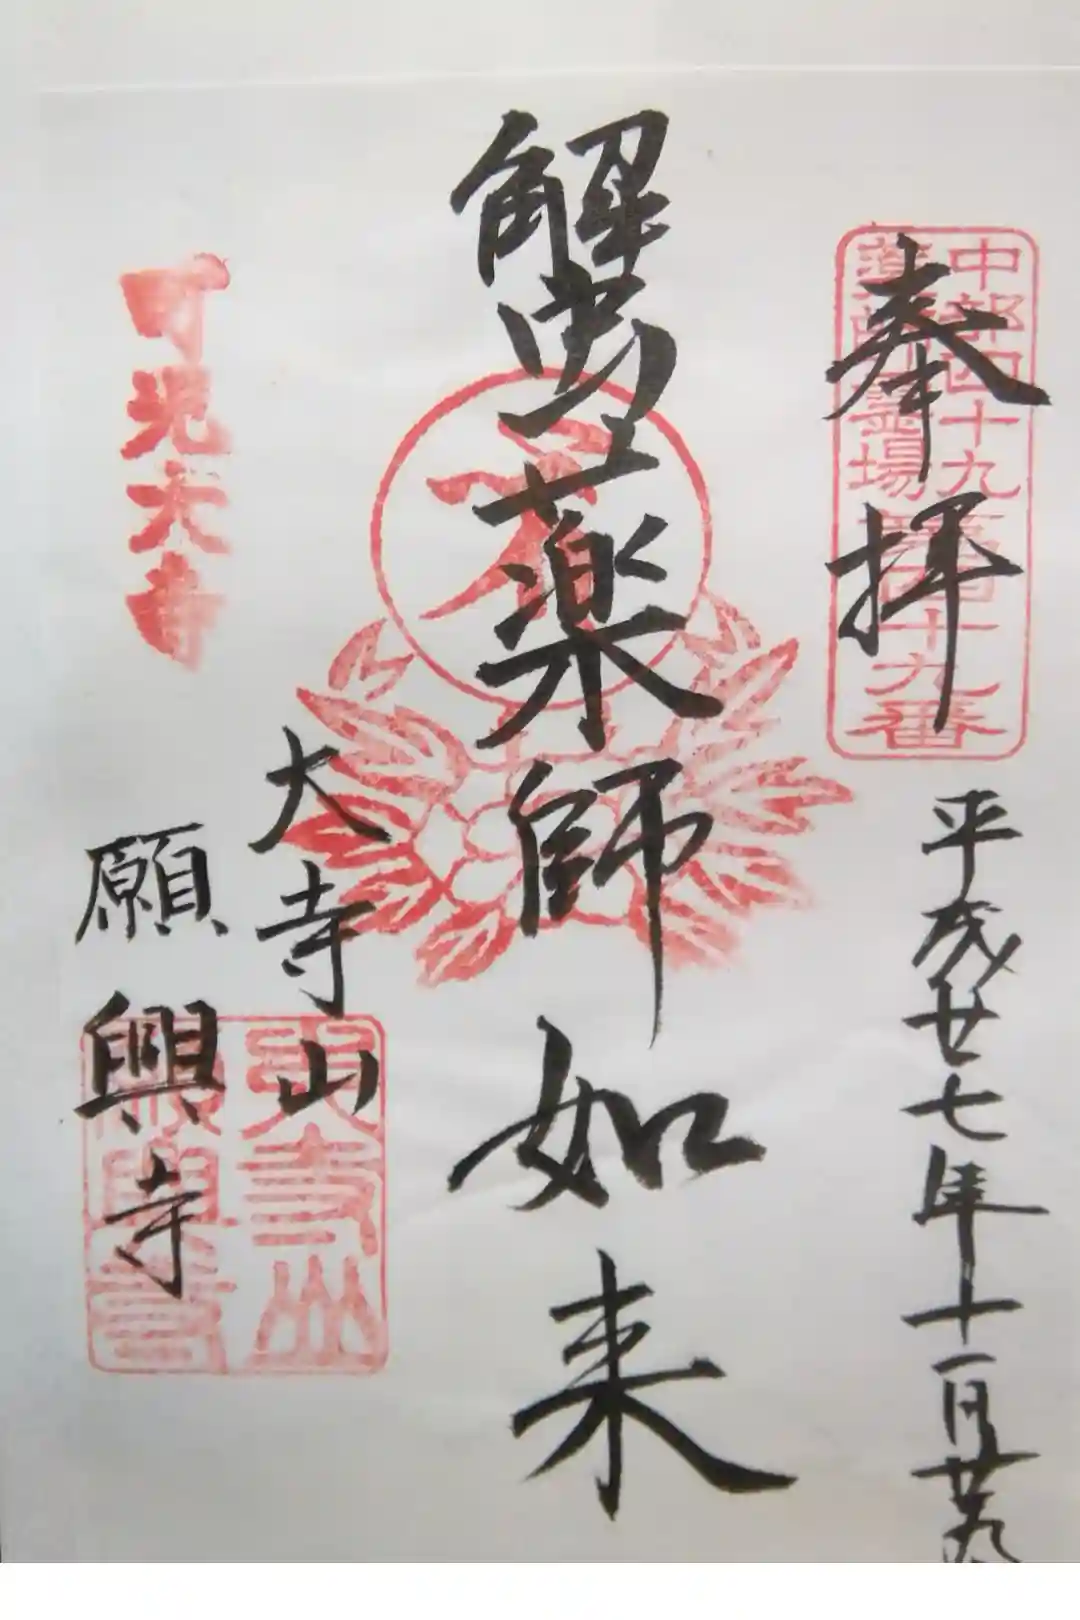 奉拝
中部四十九
薬師霊場
第四十九番
平成廿七年十一月廿九
蟹薬師如来
大寺山
願興寺
可児大寺
大寺山
願興寺